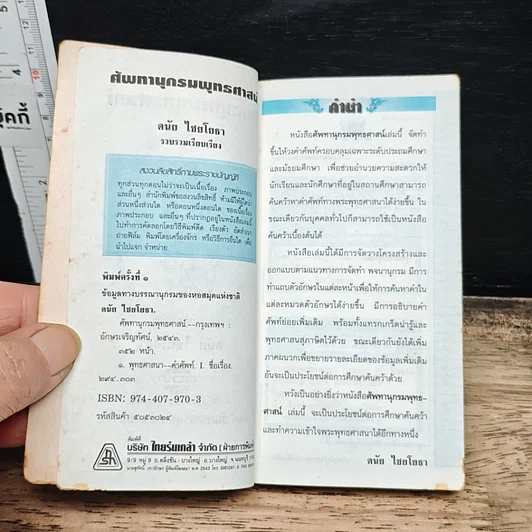 ศัพทานุกรมพุทธศาสน์
ดนัย ไชยโยธา
รวบรวมเรียบเรียง
สงวนลิขสิทธิ์ตามพระราชบัญญัติ
ทุกส่วนทุกตอนไม่ว่าจะเป็นเนื้อเรื่อง ภาพประกอบ
และอื่นๆ สำนักพิมพ์ของสงวนลิขสิทธิ์ ห้ามมิให้ผู้ใดนำ
ส่วนหนึ่งส่วนใด หรือตอนหนึ่งตอนใด ของเนื้อเรื่อง
ภาพประกอบ และอื่นๆ ที่ปรากฏอยู่ในหนังสือเล่มนี้
ไปทำการคัดลอกโดยวิธีพิมพ์ดีด เรียงตัว อัดสำเนา
ถ่ายฟิล์ม พิมพ์โดยเครื่องจักร หรือวิธีการอื่นใด เพื่อ
นำไปแจก จำหน่าย
พิมพ์ครั้งที่ ๑
ข้อมูลทางบรรณานุกรมของหอสมุดแห่งชาติ
ดนัย ไชยโยธา.
ศัพทานุกรมพุทธศาสน์.--กรุงเทพฯ :
อักษรเจริญทัศน์, ๒๕๔๓.
๓๕๒ หน้า.
๑. พุทธศาสนา--คำศัพท์. I. ชื่อเรื่อง.
๒๙๔.๓๐๓
ISBN: 974-407-970-3
รหัสสินค้า ๕๐๕๓๐๒๔
พิมพ์ที่
บริษัท ไทยร่มเกล้า จำกัด (ฝ่ายการพิมพ์)
คำนำ
หนังสือศัพทานุกรมพุทธศาสน์เล่มนี้ จัดทำ
ขึ้นให้วงคำศัพท์ครอบคลุมเฉพาะระดับประถมศึกษา
และมัธยมศึกษา เพื่อช่วยอำนวยความสะดวกให้
นักเรียนและนักศึกษาที่อยู่ในสถานศึกษาสามารถ
ค้นคว้าหาคำศัพท์ทางพระพุทธศาสนาได้ง่ายขึ้น ใน
ขณะเดียวกันบุคคลทั่วไปก็สามารถใช้เป็นหนังสือ
ค้นคว้าเบื้องต้นได้
หนังสือเล่มนี้ได้มีการจัดวางโครงสร้างและ
ออกแบบตามแนวทางการจัดทำ พจนานุกรม มีการ
ทำแถบตัวอักษรในแต่ละหน้าเพื่อให้การค้นหาคำใน
แต่ละหมวดตัวอักษรได้ง่ายขึ้น มีการอธิบายคำ
ศัพท์ย่อยเพิ่มเติม พร้อมทั้งแทรกเกร็ดน่ารู้และ
พุทธศาสนสุภาษิตไว้ด้วย ขณะเดียวกันยังได้เพิ่ม
ภาคผนวกเพื่อขยายรายละเอียดของข้อมูลเพิ่มเติม
อันจะเป็นประโยชน์ต่อการศึกษาค้นคว้าด้วย
หวังเป็นอย่างยิ่งว่าหนังสือศัพทานุกรมพุทธ-
ศาสน์ เล่มนี้ จะเป็นประโยชน์ต่อการศึกษาค้นคว้า
และทำความเข้าใจพระพุทธศาสนาได้อีกทางหนึ่ง
ดนัย ไชยโยธา